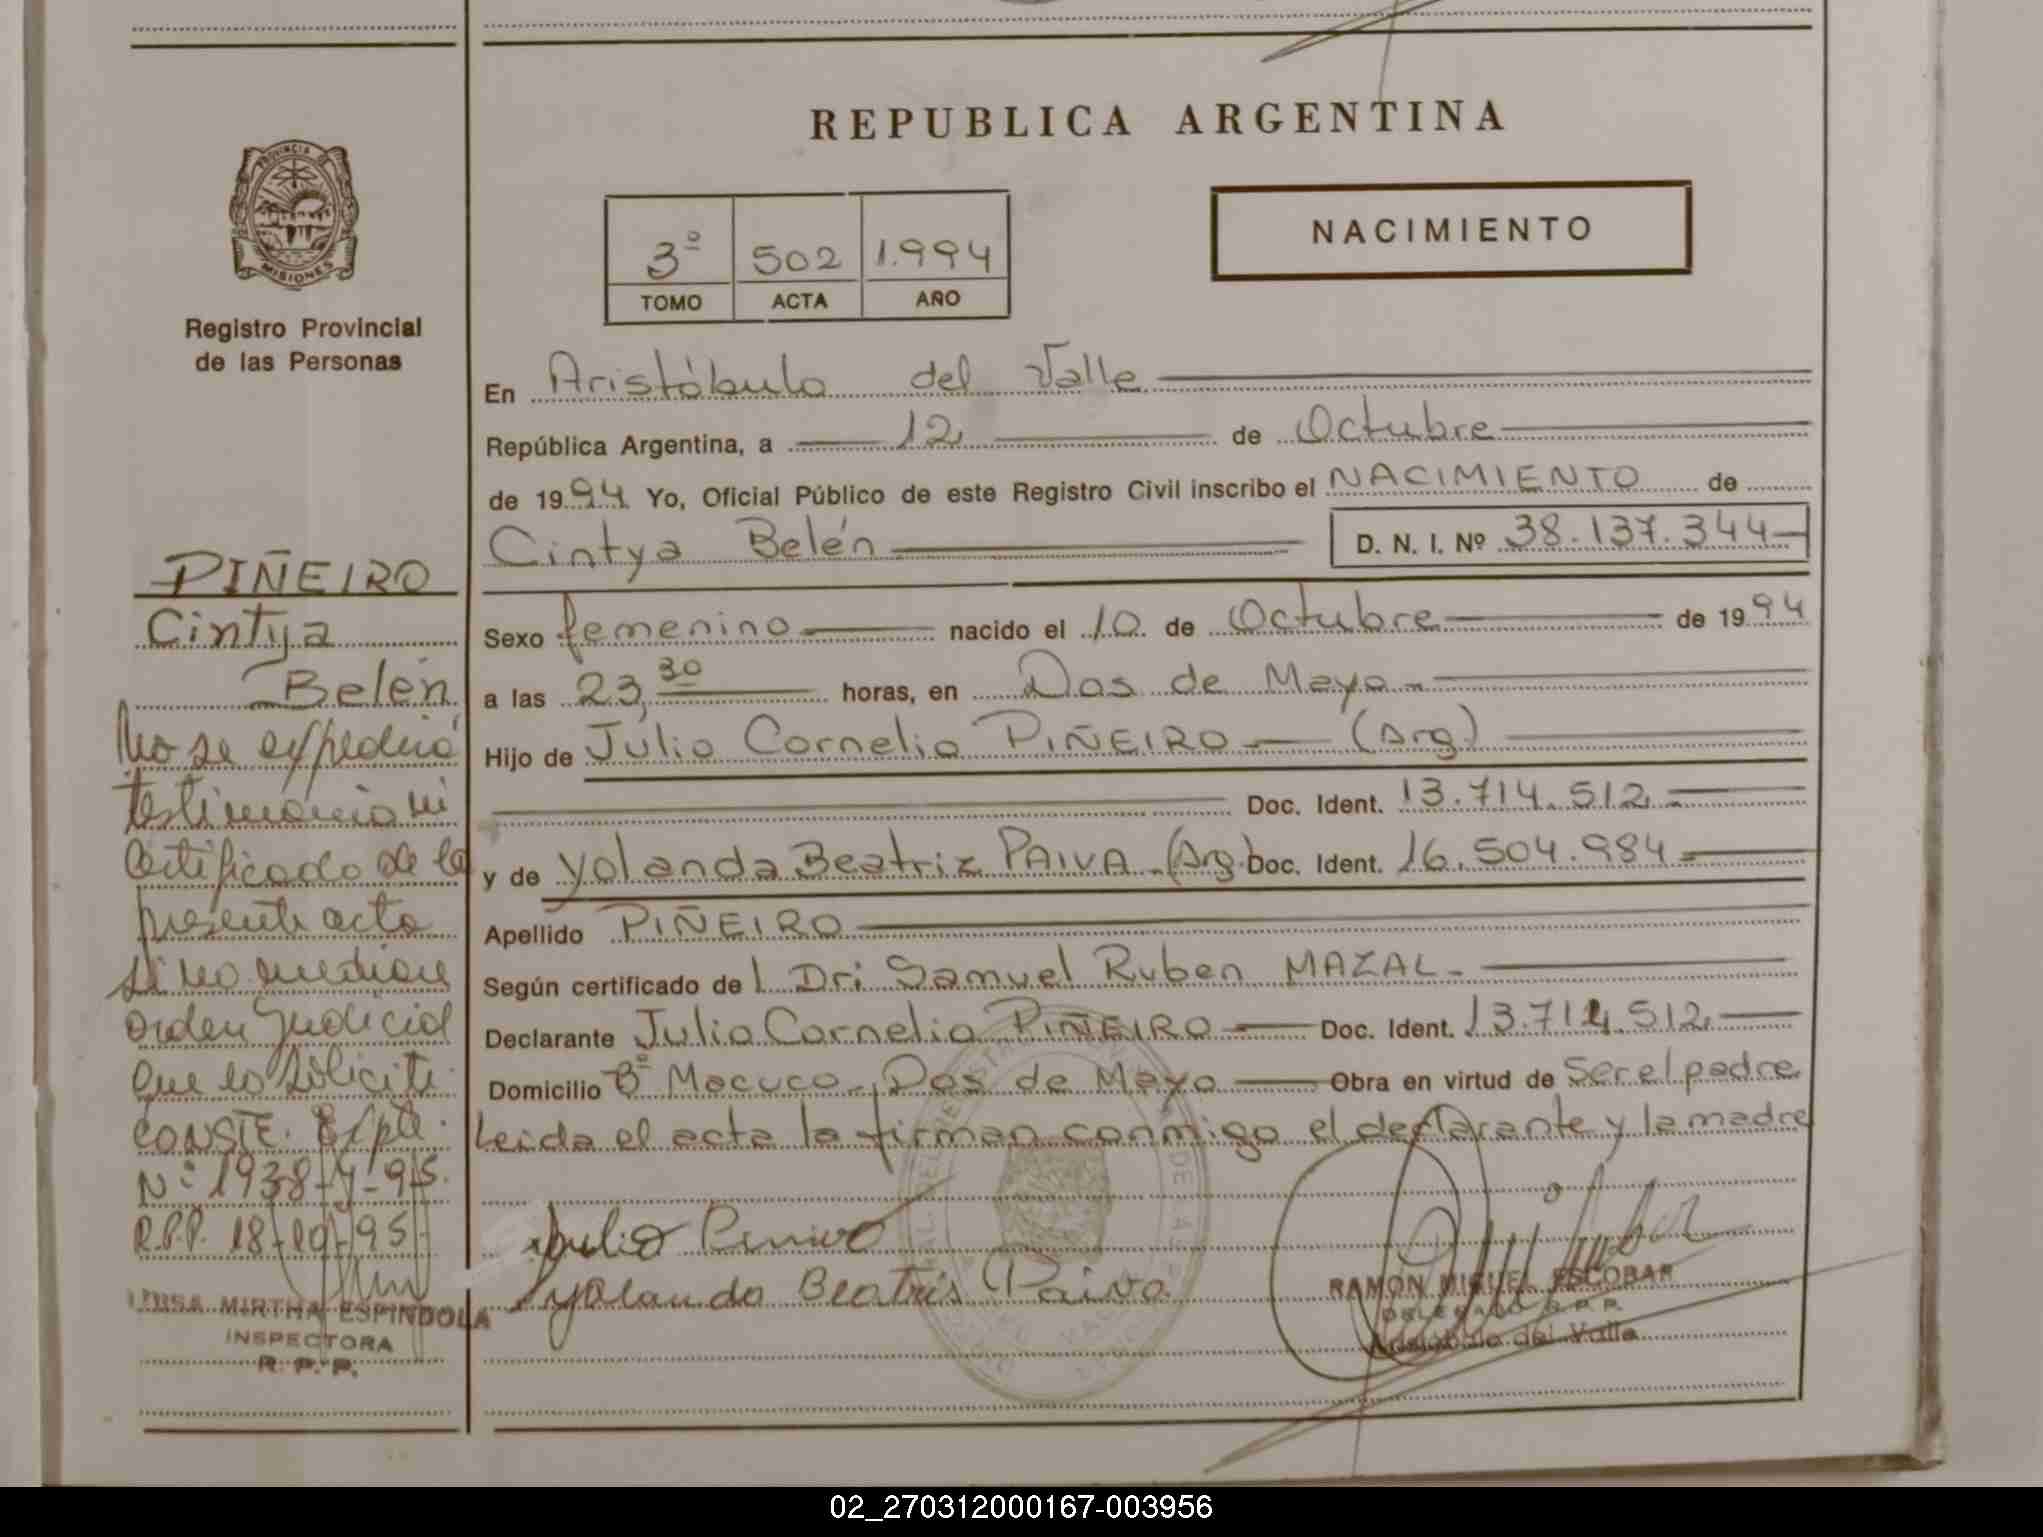 REPUBLICA ARGENTINA
PROVINCIA DE
MISIONES
Registro Provincial
de las Personas
3º 502 1.994
TOMO ACTA AÑO
NACIMIENTO
En Aristóbulo del Valle
República Argentina, a 12 de Octubre
de 1994 Yo, Oficial Público de este Registro Civil inscribo el NACIMIENTO de
Cintya Belén D. N. I. Nº 38.137.344
Sexo femenino nacido el 10 de Octubre de 1994
a las 23,30 horas, en Dos de Mayo
Hijo de Julio Cornelio PIÑEIRO (Arg)
Doc. Ident. 13.714.512
y de Yolanda Beatriz PAIVA (Arg.) Doc. Ident. 16.504.984
Apellido PIÑEIRO
Según certificado de l Dr: Samuel Ruben MAZAL
Declarante Julio Cornelio PIÑEIRO Doc. Ident. 13.714.512
Domicilio Bº Macuco - Dos de Mayo Obra en virtud de Ser el padre
Leida el acta la firman conmigo el declarante y la madre
Yolando Beatris Paiva
RAMON MIGUEL ESCOBAR
DELEGADO R. P. P.
Aristóbulo del Valle
PIÑEIRO
Cintya
Belén
No se expedirá
testimonio ni
certificado de la
presente acta
si no mediare
orden Judicial
que lo solicite
CONSTE. Expte.
Nº 1938-Y-95.
R.P.P. 18-10-95
LUISA MIRTHA ESPINDOLA
INSPECTORA
R. P. P.
02_270312000167-003956